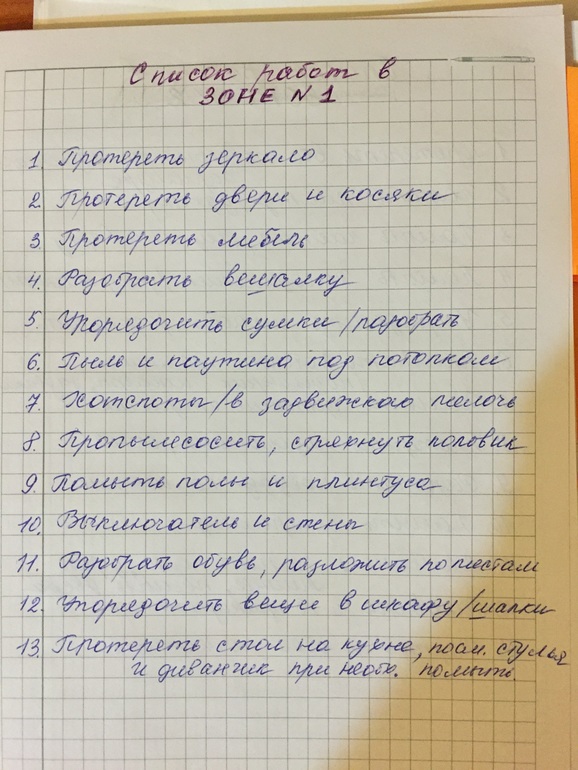 Список работ в
ЗОНЕ N 1
1. Протереть зеркало
2. Протереть двери и косяки
3 Протереть мебель
4. Разобрать вешалку
5. Упорядочить сумки/разобрать
6. Пыль и паутина под потолком
7. Хотспоты/в задвижках мелочь
8. Пропылесосить, стряхнуть половик
9. Помыть полы и плинтуса
10. Выключатель и стены
11. Разобрать обувь, разложить по местам
12. Упорядочить вещи в шкафу/шапки
13. Протереть стол на кухне, стулья
и диванчик при необх. помыть.